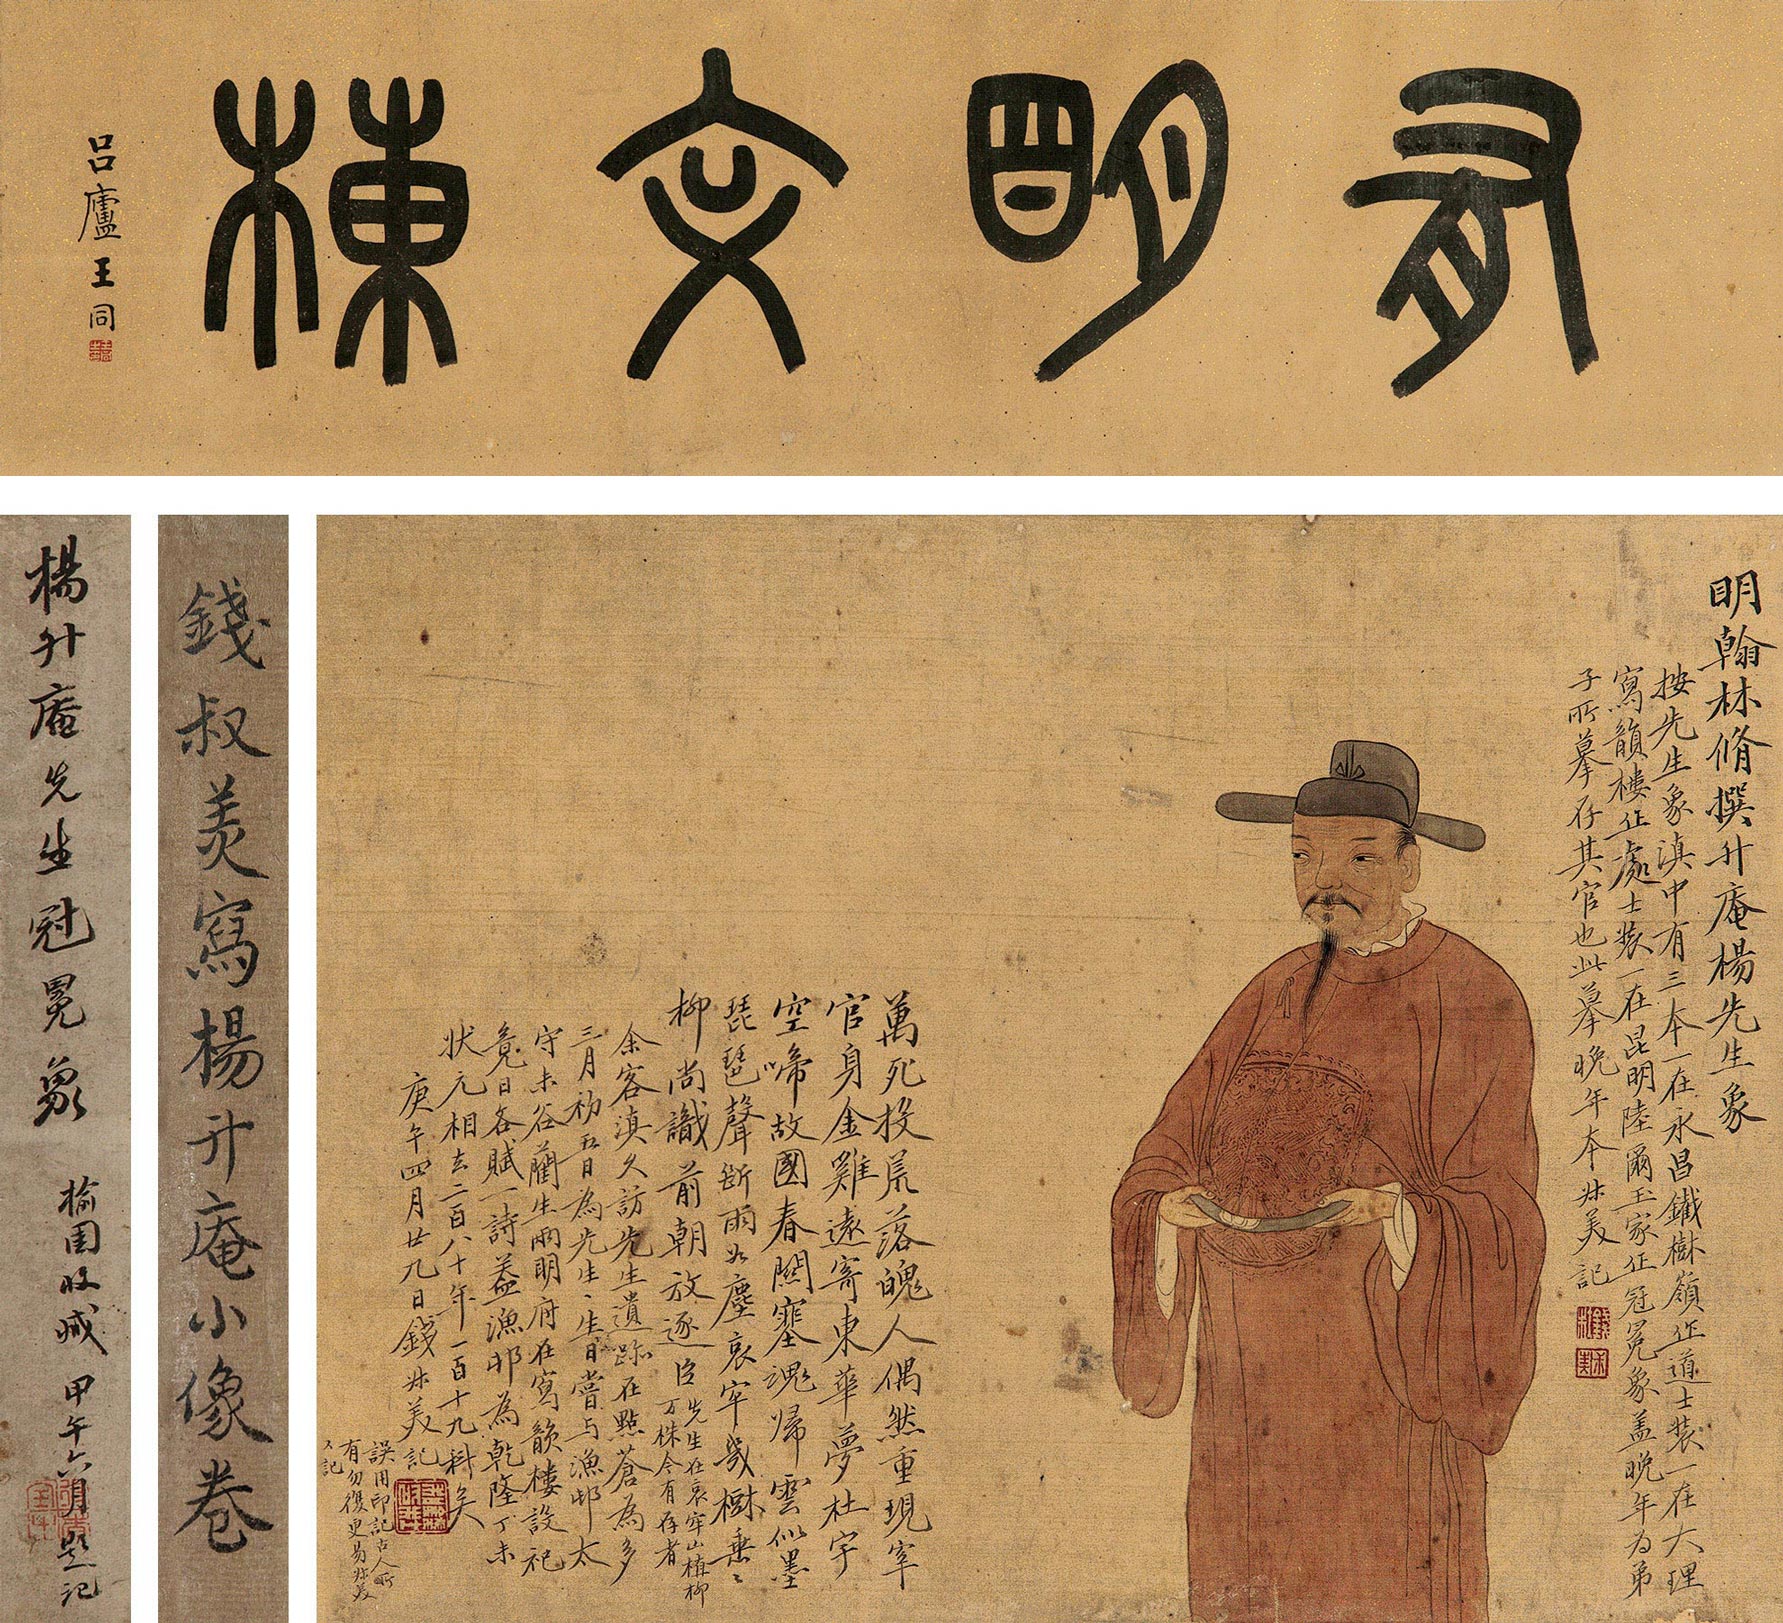 有明文棟
吕廬王同
明翰林脩撰升庵楊先生象
按先生象滇中有三本一在永昌鐵樹嶺作道士裝一在大理
寫韻樓作處士裝一在昆明陸爾玉家作冠冕象盖晚年為弟
子所摹存其官也此摹晚年本尗美記
萬死投荒落魄人偶然重現宰
官身金雞遠寄東華夢杜宇
空啼故國春關塞魂歸雲似墨
琵琶聲斷雨如塵哀牢幾樹垂垂
柳尚識前朝放逐臣
先生在哀牢山植柳
万株今有存者
余客滇久訪先生遺跡在點蒼為多
三月初五日為先生生日嘗与漁邨太
守未谷蘭生雨明府在寫韻樓設祀
竟日各賦一詩盖漁邨為乾隆丁未
狀元相去二百八十年一百十九科矣
庚午四月廿九日錢尗美記
誤用印記古人所
有勿復更易尗美
又記
錢叔美寫楊升庵小像卷
楊升庵先生冠冕象
榆園收藏 甲午六月題記